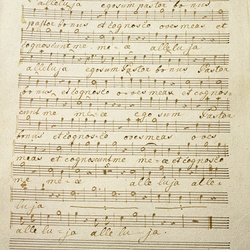 alleluja egosum pastor bonus
pastor bonus et cognosco oves meas et
cognoscunt me meæ alleluja
alleluja egosum Pastor bonus Pastor
bonus et cognosco oves meas et cognos
cunt me meæ ego sum Pastor
bonus et cognosco oves meas oves
meas et cognoscunt me meæ et cognosco
me meæ alleluja alle-
luja alleluja.